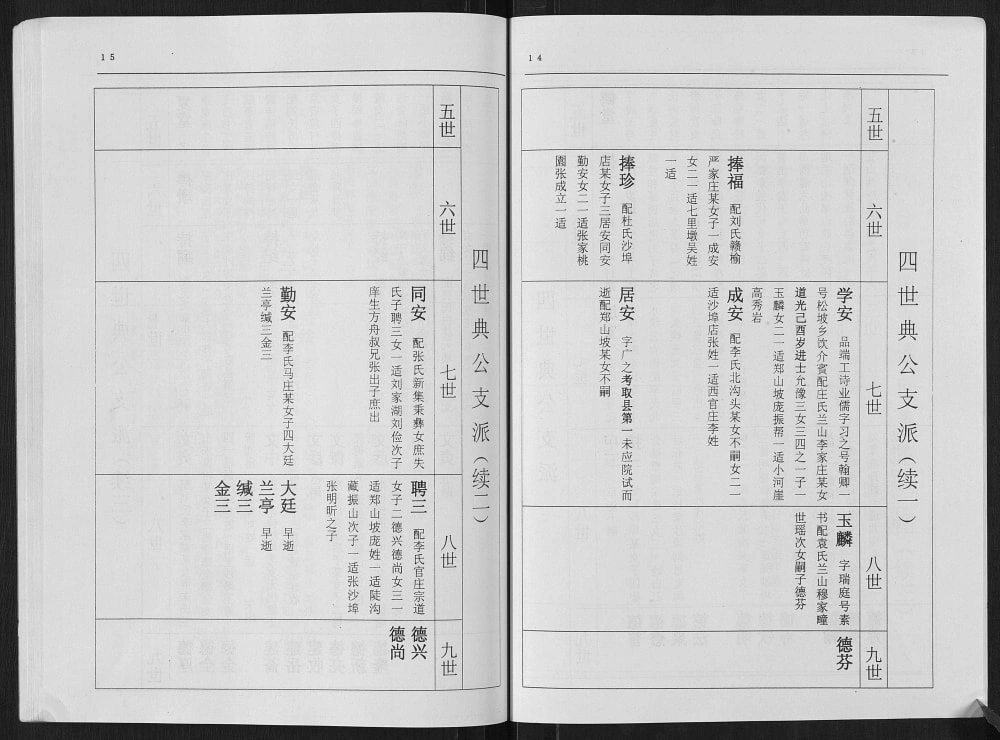 14
四世典公支派（续一）
五世
六世
捧福 配刘氏赣榆
严家庄某女子一成安
女二一适七里墩吴姓
一适
捧珍 配杜氏沙埠
店某女子三居安同安
勤安女二一适张家桃
園张成立一适
七世
学安 品端工诗业儒字习之号翰卿一
号松坡乡饮介賓配庄氏兰山李家庄某女
道光己酉岁进士允豫三女三四之一子一
玉麟女二一适郑山坡庞振帮一适小河崖
高秀岩
成安 配李氏北沟头某女不嗣女二一
适沙埠店张姓一适西官庄李姓
居安 字广之考取县第一未应院试而
逝配郑山坡某女不嗣
八世
玉麟 字瑞庭号素
书配袁氏兰山穆家疃
世瑶次女嗣子德芬
九世
德芬
15
四世典公支派（续二）
五世
六世
七世
同安 配张氏新集秉彝女庶失
氏子聘三女一适刘家湖刘俭次子
庠生方舟叔兄张出子庶出
勤安 配李氏马庄某女子四大廷
兰亭缄三金三
八世
聘三 配李氏官庄宗道
女子二德兴德尚女三一
适郑山坡庞姓一适陡沟
藏振山次子一适张沙埠
张明昕之子
大廷 早逝
兰亭 早逝
缄三
金三
九世
德兴
德尚